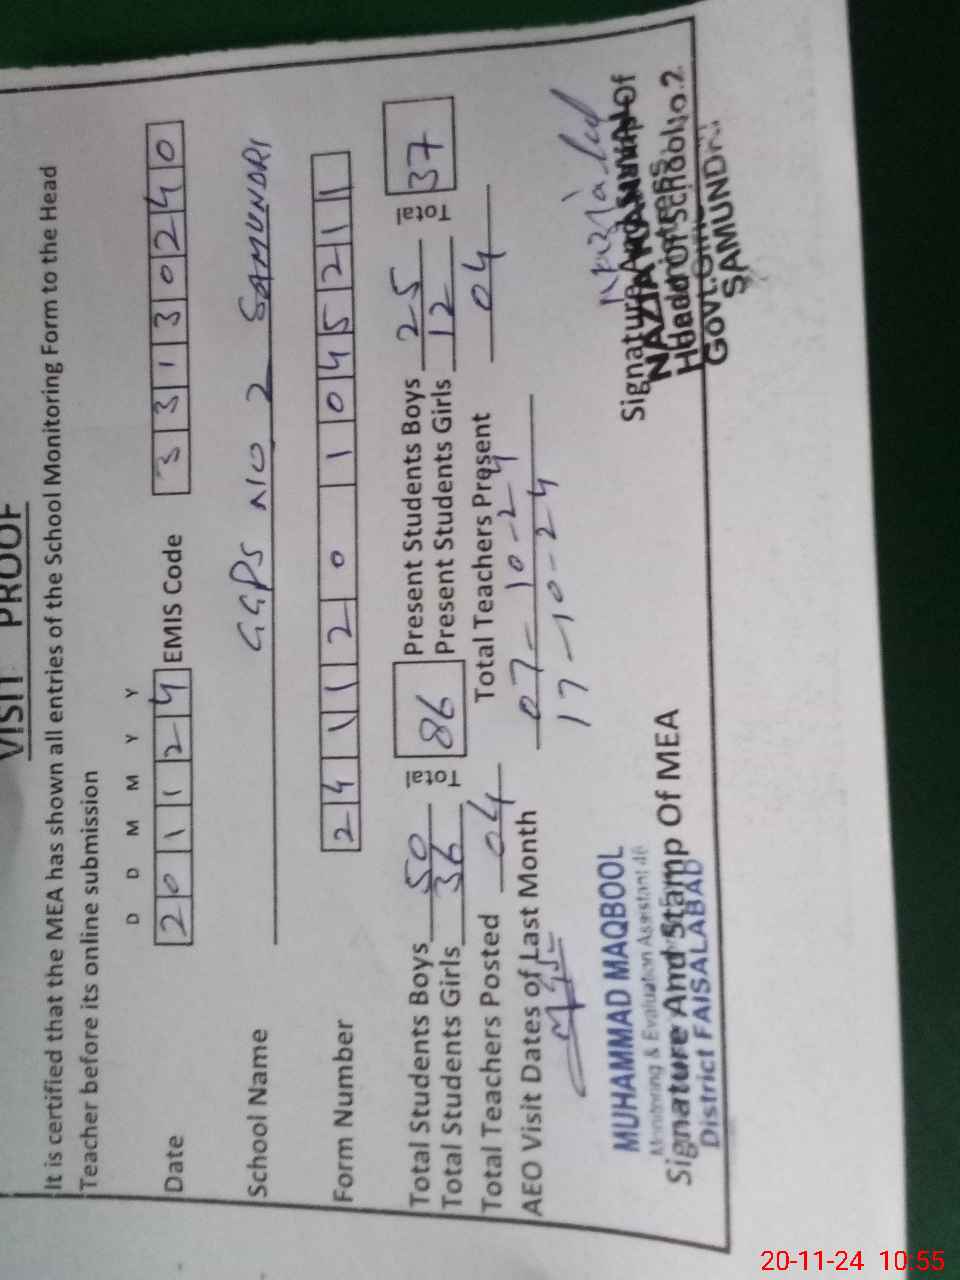 VISIT PROOF
It is certified that the MEA has shown all entries of the School Monitoring Form to the Head
Teacher before its online submission
D D M M Y Y
Date 201124 EMIS Code 33130240
School Name GGPS NO 2 SAMUNDRI
Form Number 2411201045211
Total Students Boys 50 Total 86 Present Students Boys 25 Total 37
Total Students Girls 36 Present Students Girls 12
Total Teachers Posted 04 Total Teachers Present 04
AEO Visit Dates of Last Month 07-10-24
17-10-24
MUHAMMAD MAQBOOL
Monitoring & Evaluation Assistant 46
Signature And Stamp Of MEA
District FAISALABAD
Nazia
Signature And Stamp Of
NAZIA
Head Of School
No.2
SAMUNDRI
20-11-24 10:55